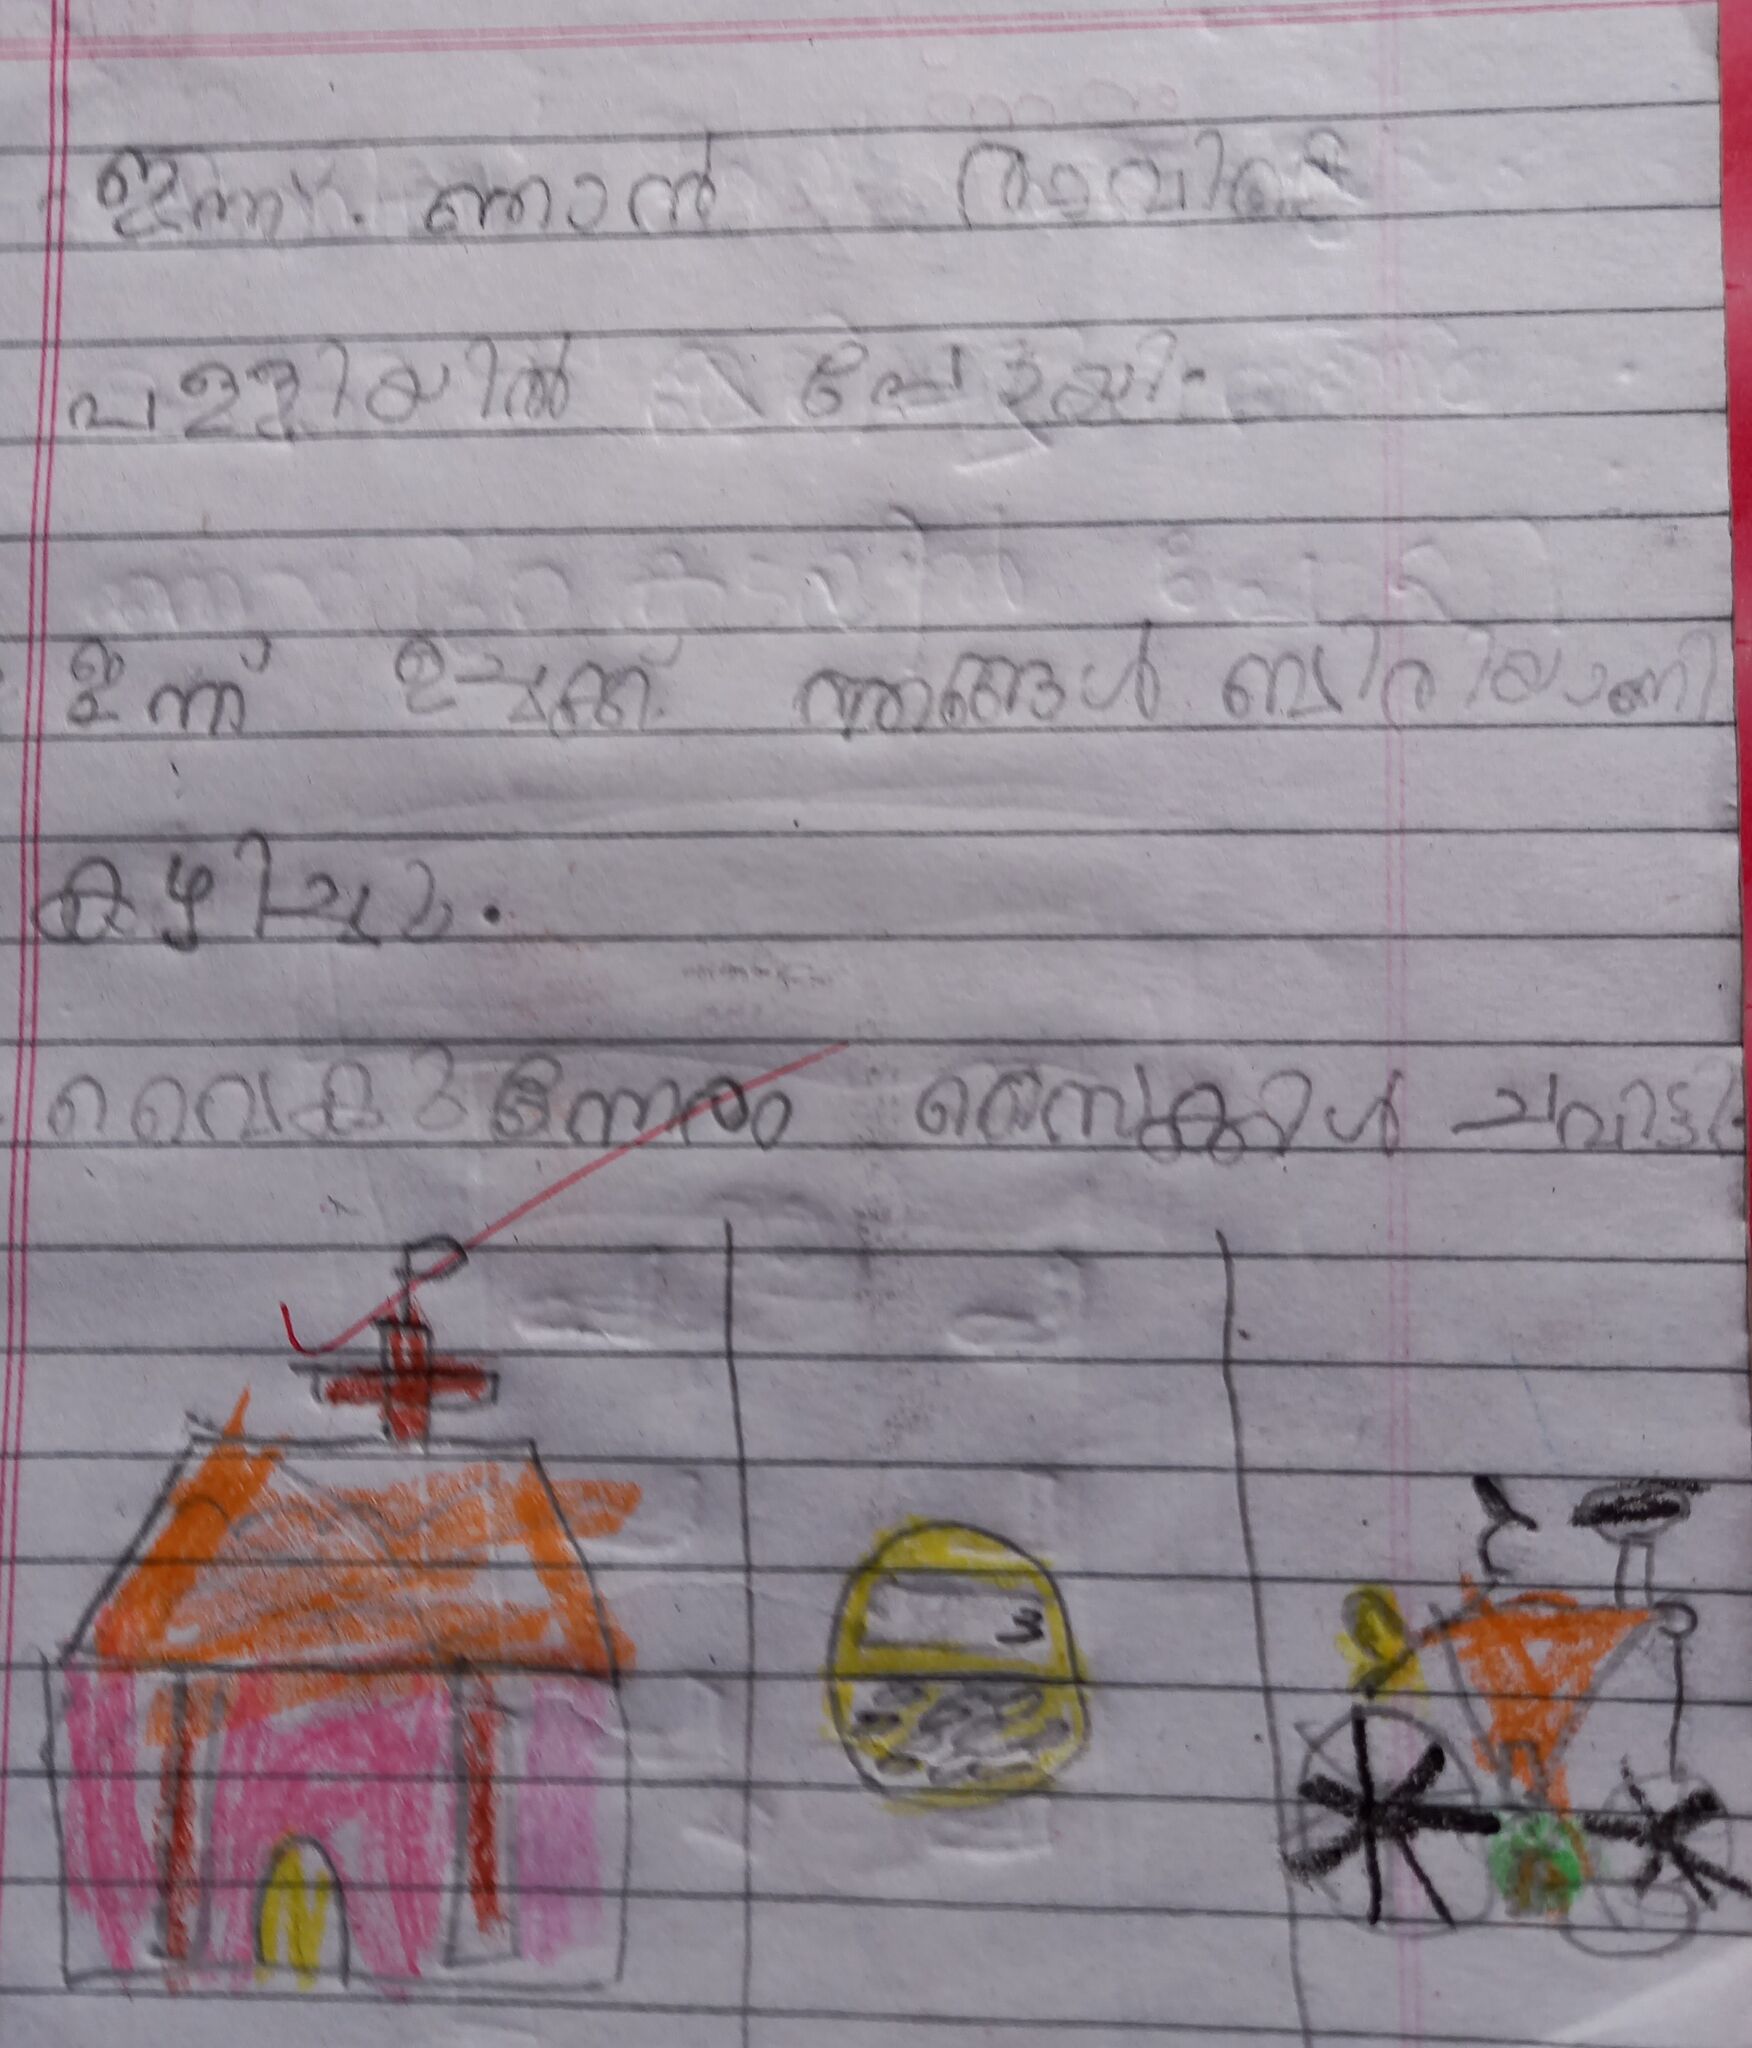 ഇന്ന്. ഞാൻ രാവിലെ
പള്ളിയിൽ പോയി.
ഇന്ന് ഉച്ചക്ക് ഞങ്ങൾ ബിരിയാണി
കഴിച്ചു.
വൈകുന്നേരം സൈക്കിൾ ചവിട്ടി